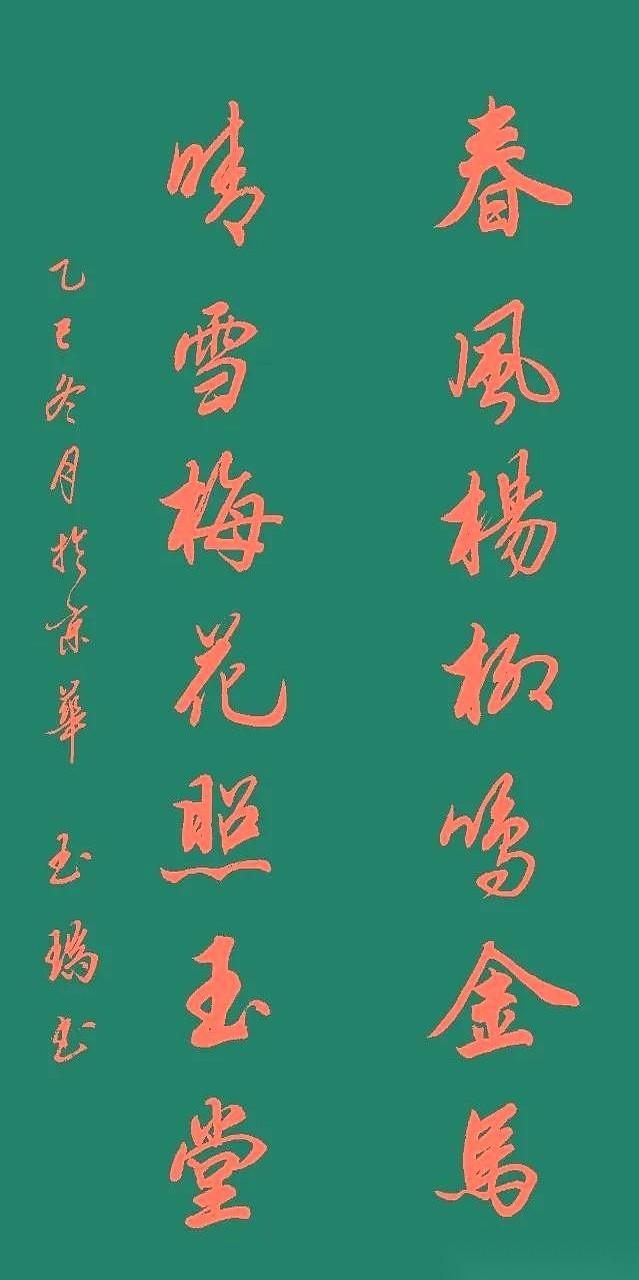 春風楊柳鳴金馬
晴雪梅花照玉堂
乙巳冬月於京華 玉瑞书